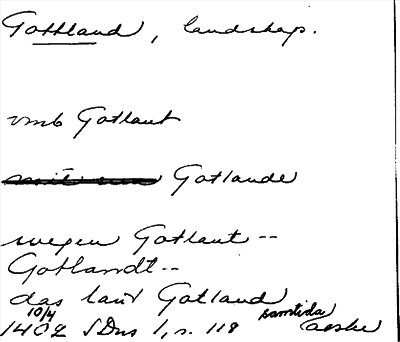 Gottland, landskap.
vmb Gotlant
Gotlande
wegen Gotlant --
Gotlandt --
das lant Gotland
10/4 samtida
1402 SDns 1, s. 118